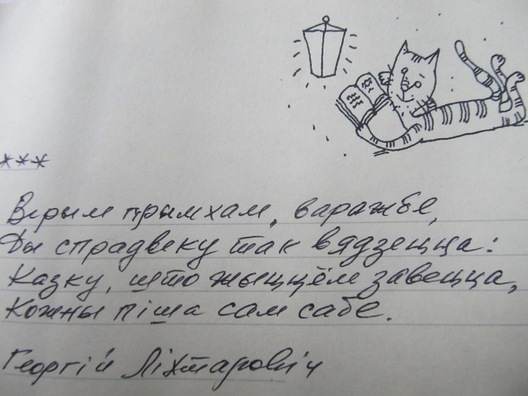 ***
Верым прымхам, варажбе,
Ды спрадвеку так вядзецца:
Казку, што жыццём завецца,
Кожны піша сам сабе.
Георгій Ліхтаровіч